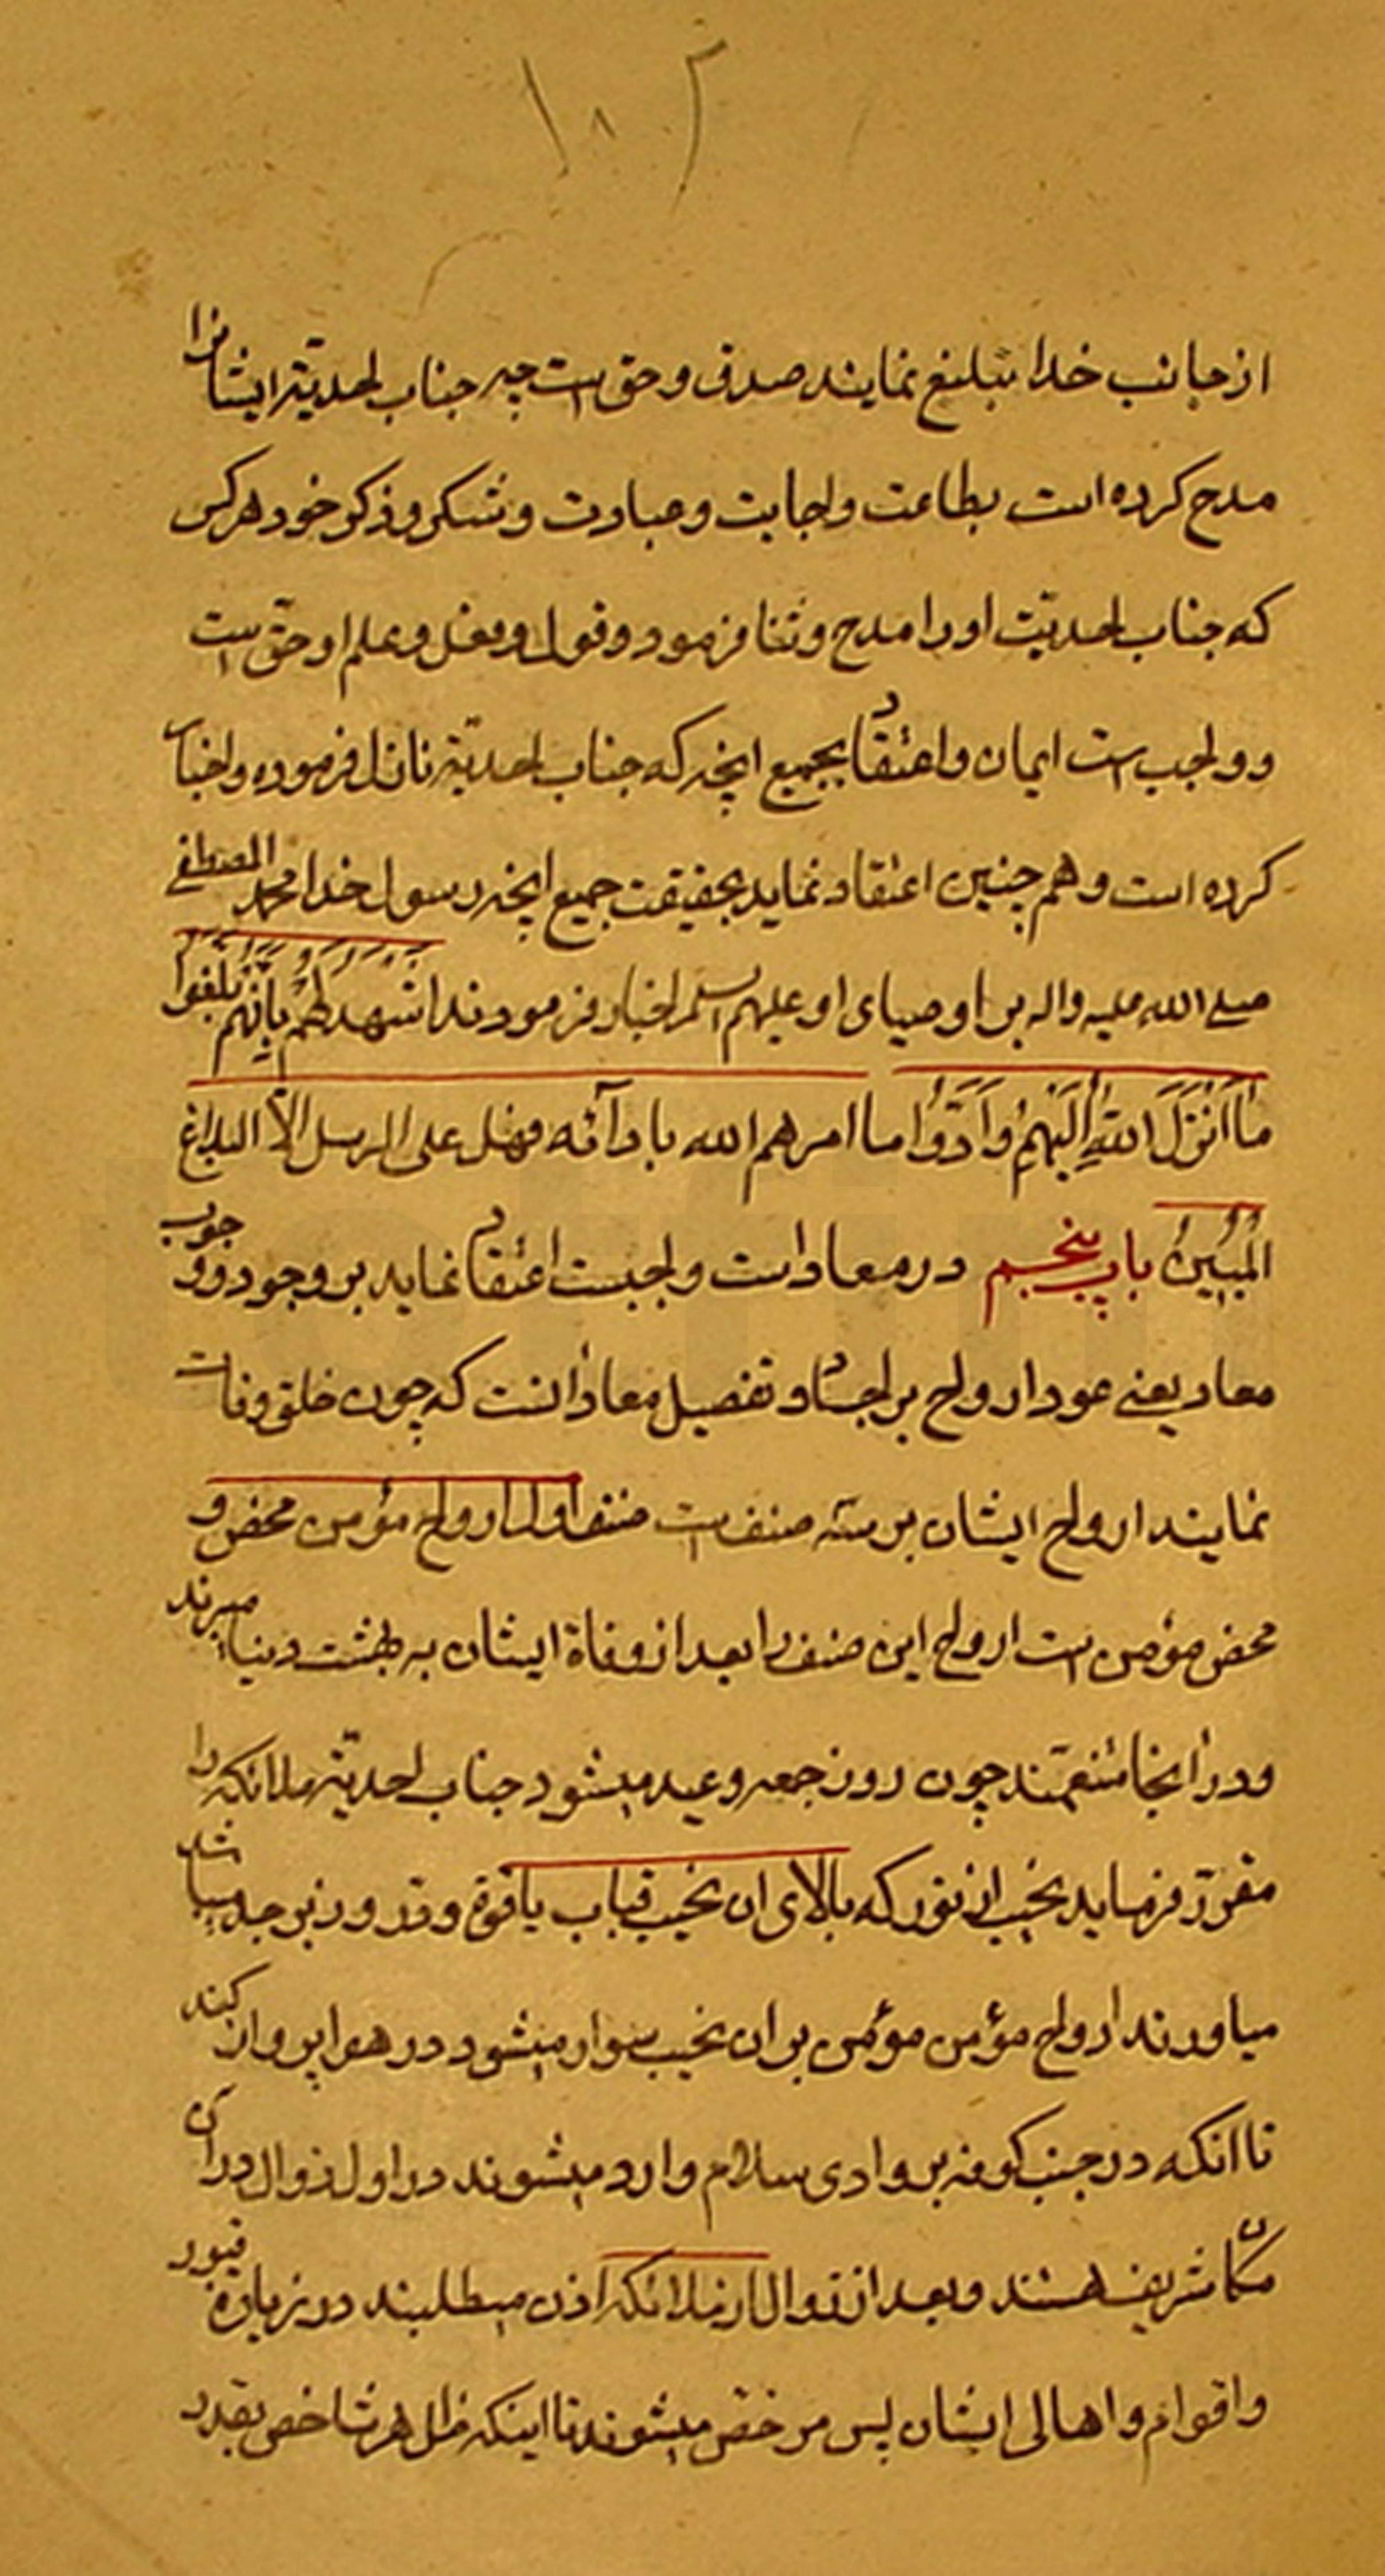 ۱۰۲
از جانب خدا تبلیغ نمایند صدق و حق است چه جناب احدیة ایشانرا
مدح کرده است بطاعت واجابت وعبادت وشکر وذکر خود هرکس
که جناب احدیّت اورا مدح وثنا فرمود وقول وفعل وعلم او حق است
و واجب است ایمان واعتقاد بجمیع انچه که جناب احدیّة نازل فرموده واخبار
کرده است وهم چنین اعتقاد نماید بحقیقت جمیع انچه رسول خدا محمد المصطفی
صلی الله علیه واله بر اوصیای او علیهم السلم اخبار فرمودند اشهد لهم بانهم بلغوا
ما اَنْزَلَ اللهُ اِلَیْهِمْ واَدَّوْا ما امرهم الله باداۤئه فهل علی الرسل الّا البلاغ
المُبینُ باب پنجم در معاد است واجبست اعتقاد نماید بر وجود و وجوب
معاد یعنی عود ارواح بر اجساد وتفصیل معاد انست که چون خلق وفات
نمایند ارواح ایشان بر سه صنف است صنف اول ارواح مؤمن محض و
محض مؤمن است ارواح این صنف را بعد از وفاة ایشان به بهشت دنیا میبرند
ودر انجا متنعمند چون روز جمعه وعید میشود جناب احدیّة ملائکه را
مقرّر فرماید نجیب از نور که بالای ان نجیب قباب یاقوة ودر وزبرجد میباشد
میاورند ارواح مؤمن مؤمن بر ان نجیب سوار میشود در هوا پرواز کنند
تا انکه در جنب کوفه بر وادی سلام وارد میشوند در اول زوال در آن
مکان شریف هستند وبعد از زوال از ملائکه اذن میطلبند در زیارة قبور
واقوام واهالی ایشان پس مرخص میشوند تا اینکه ظل هر شاخص بقدر